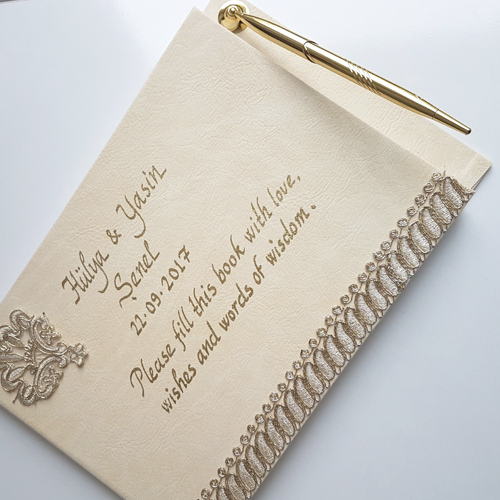 Hülya & Yasin
Şanel
22.09.2017
Please fill this book with love,
wishes and words of wisdom.